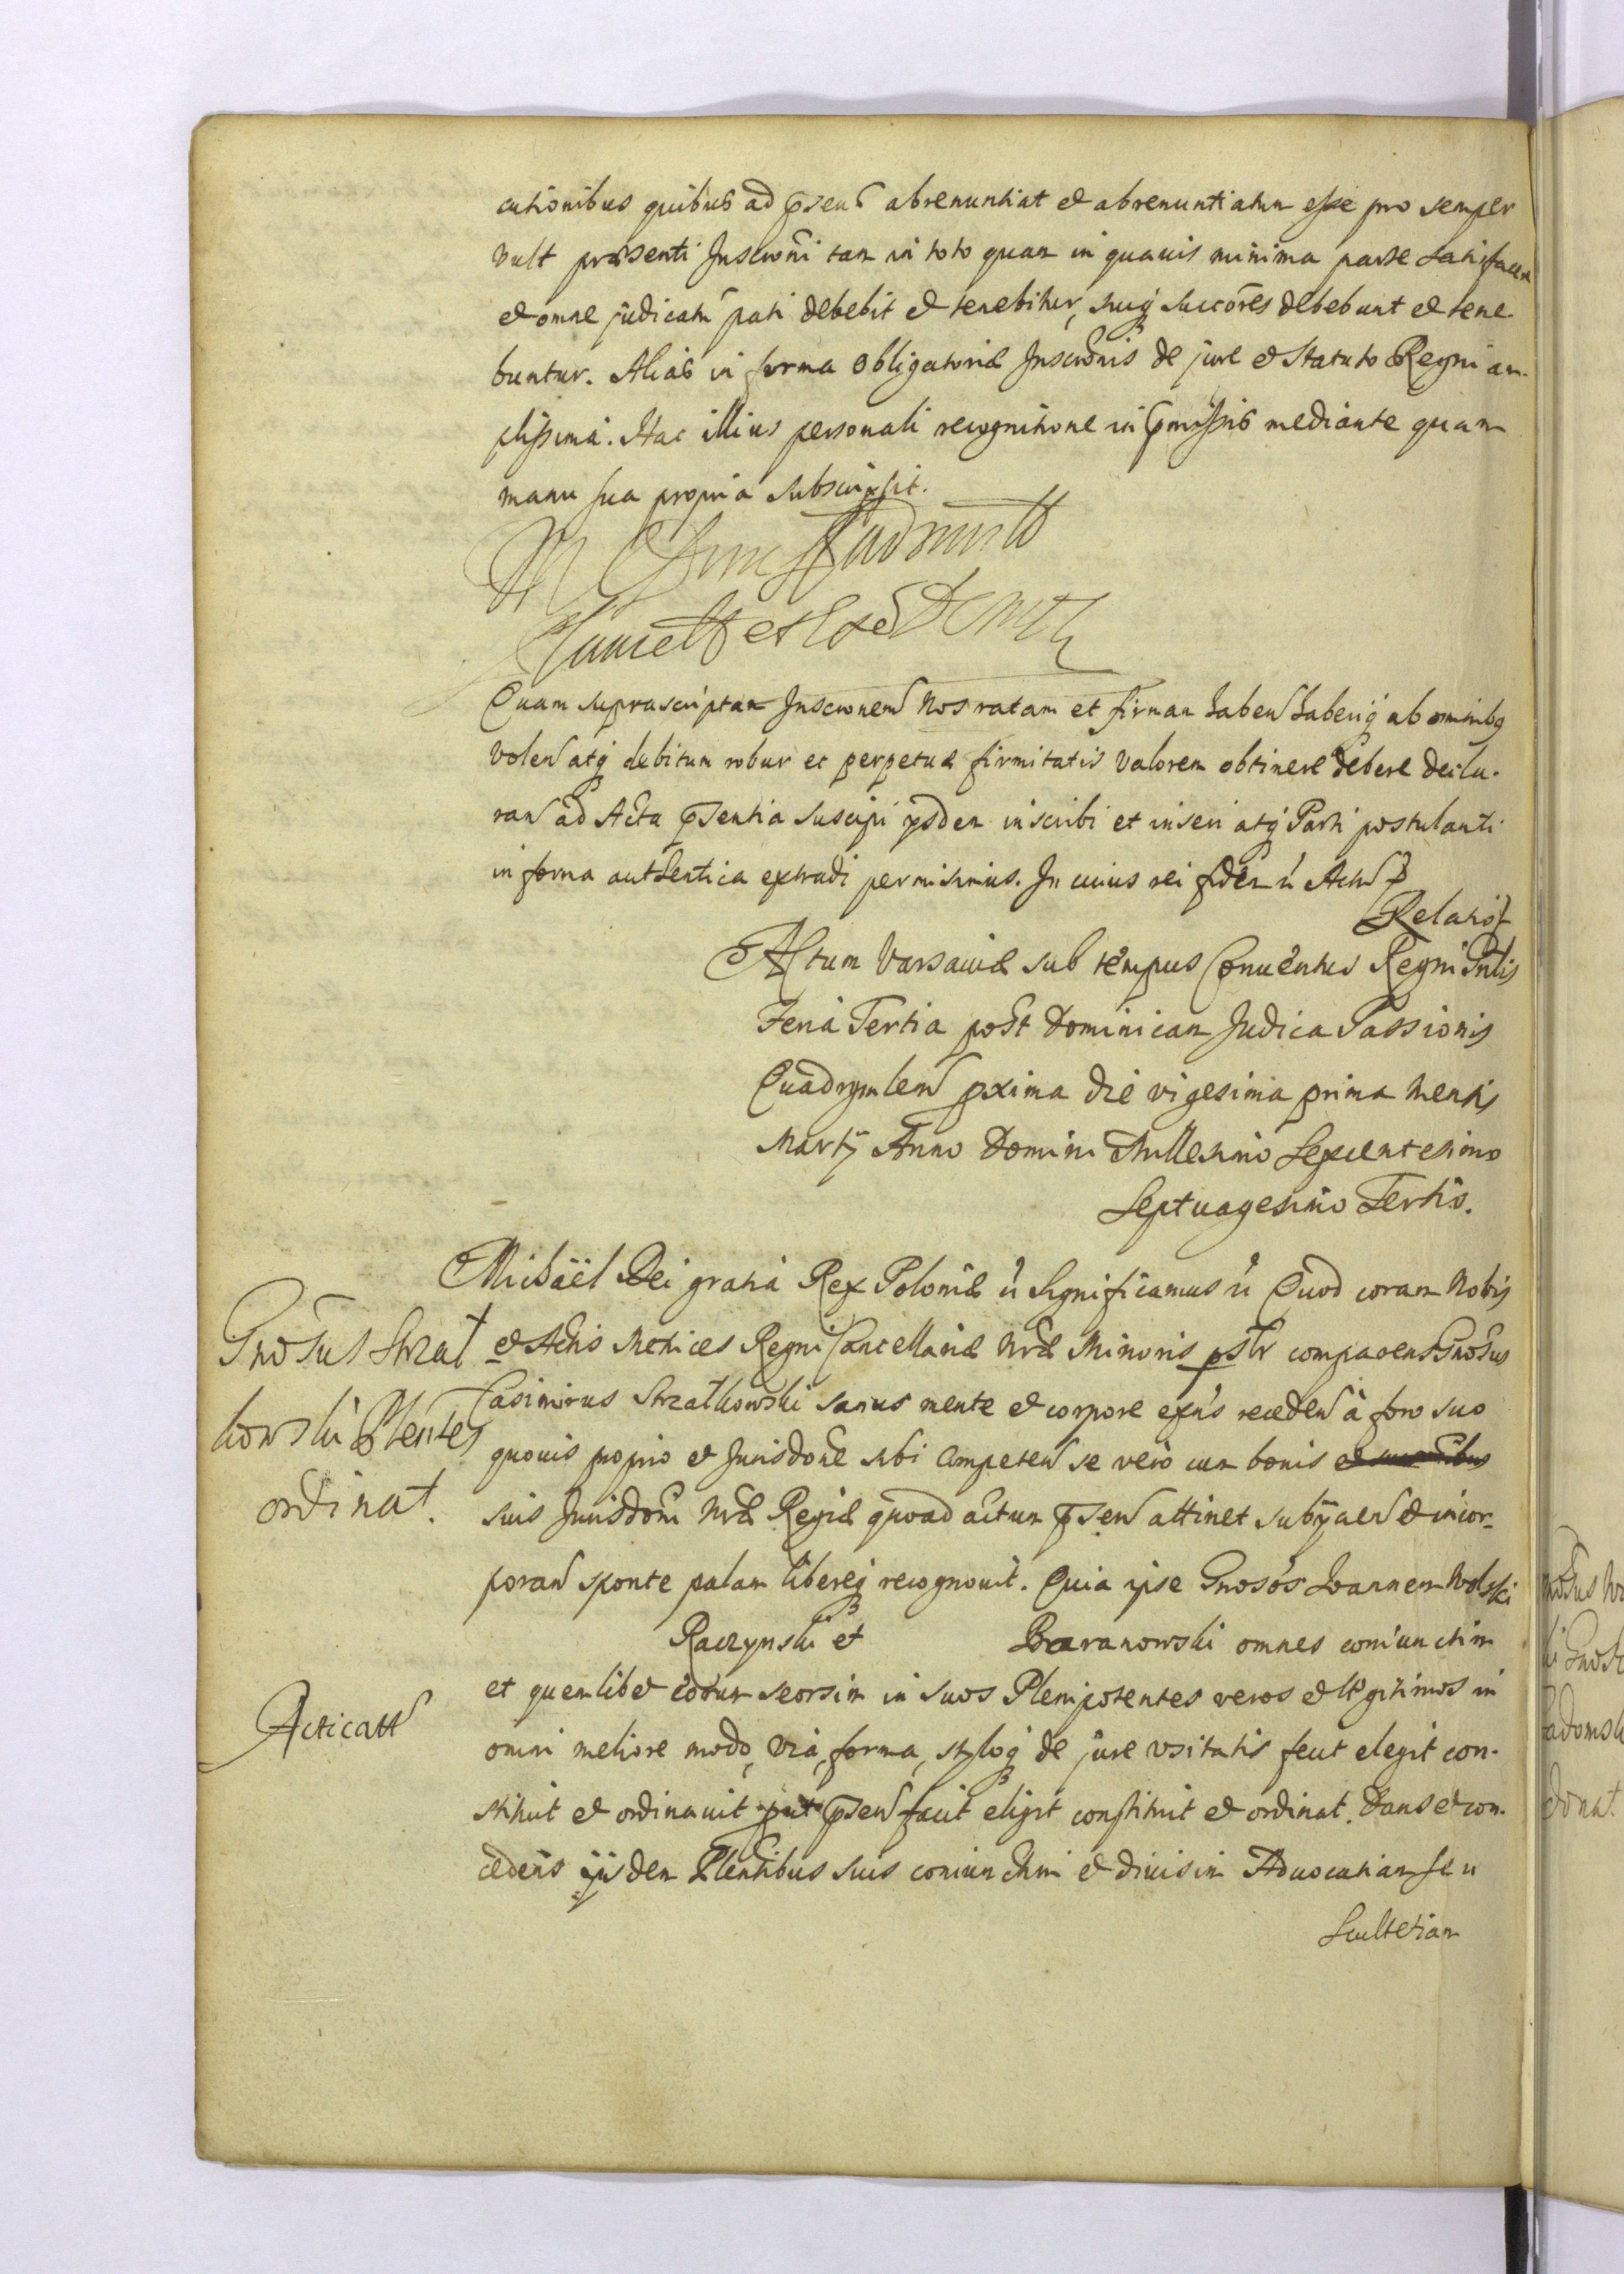 cutionibus quibus ad psens abrenuntiat et abrenuntiatum esse pro semper
vult præsenti Inscrōni tam in toto quam in quavis minima parte satisfacere
et omne judicatū pati debebit et tenebitur, suiq; succōres debebunt et tene
buntur. Alias in forma obligatoriæ Inscrōnis de jure et statuto Regni am-
plissima. Hac illius personali recognitione in pmissis mediante quam
manu sua propria subscripsit.
Quam suprascriptam Inscrōnem Nos ratam et firmam haben haberiq; ab omnibq
volen atq; debitum robur et perpetuæ firmitatis valorem obtinere debere decla-
ran ad Acta psentia suscipi ysdem inscribi et inseri atq; Parti postulanti
in forma authentica extradi permisimus. In cuius rei fidem ů Actū
Relatio
Actum Varsaviæ sub tempus Conventus Regni Gnlis
Feria Tertia post Dominicam Judica Passionis
Quadrgmlem pxima die vigesima prima Mensis
Martij Anno Domini Millesimo Sexcentesimo
Septuagesimo Tertio.
Michaël Dei gratia Rex Poloniæ ů Significamus ů Quod coram Nobis
Gnosus Strzał
kowski Plentes
ordinat.
et Actis Metrices Regni Cancellariæ Nræ Minoris pstr comparens Gnosus
Casimirus Strzałkowski sanus mente et corpore exns receden à foro suo
quovis proprio et Jurisdone sibi competen se vero cum bonis
suis Jurisdoni Nræ Regiæ quoad actum psen attinet subijcien et incor-
poran sponte palam libereq; recognovit. Quia ipse Gnosos Joannem Wolski
Raczynski et Baranowski omnes coniunctim
et quemlibet eorum seorsim in suos Plenipotentes veros et legitimos in
Acticatt
omni meliore modo, via, forma, styloq; de jure usitatis fecit elegit con-
stituit et ordinavit put psen facit eligit constituit et ordinat. Dans et con-
cedens ijsdem Plentibus suis coniunctim et divisim Advocatiam seu
Scultetiam